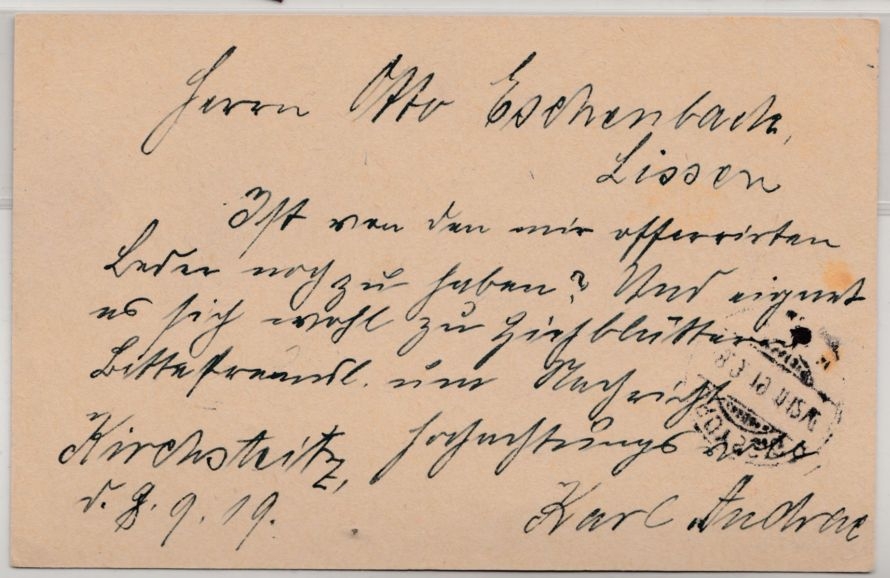 Herrn Otto Eschenbach,
Lissen
Ist von den mir offerrirten
Leder noch zu haben? Und eignet
es sich wohl zu
Bitte freundl. um Nachricht
Kirchsteitz, Hochachtungsv
d. 8. 9. 19. Karl Andrae